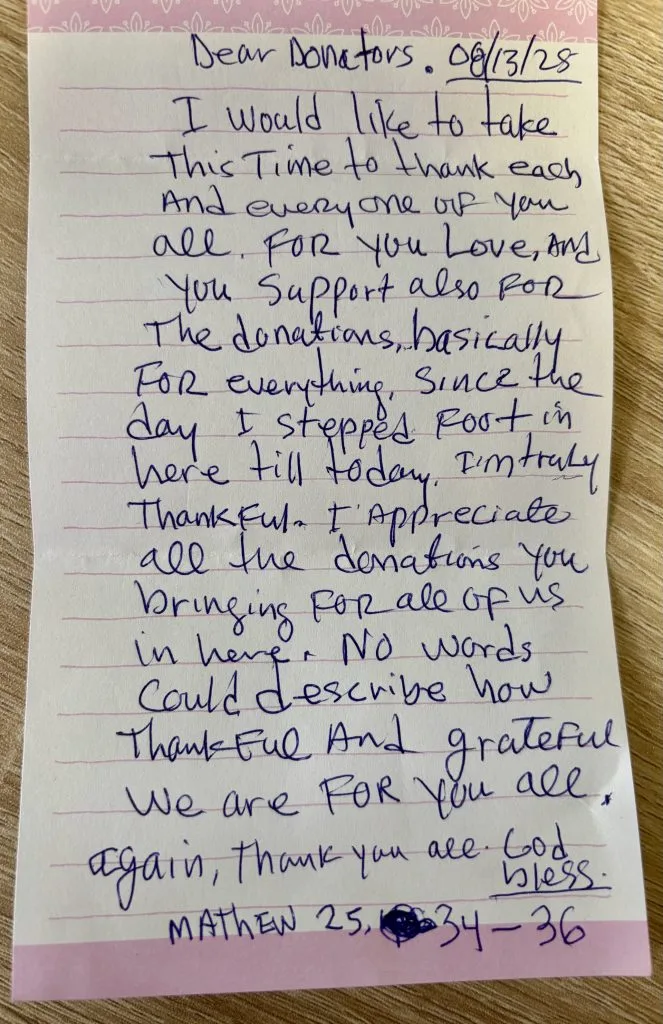 Dear Donators. 08/13/28
I would like to take
This Time to thank each
And everyone of you
all. FOR you Love, And
you Support also FOR
The donations, basically
FOR everything, Since the
day I stepped Foot in
here till today. I'm truly
ThankFul. I Appreciate
all the donations you
bringing FOR all OF us
in here. NO words
Could describe how
ThankFul And grateFul
We are FOR you all.
again, thank you all. God
bless.
MATHEW 25, 34-36